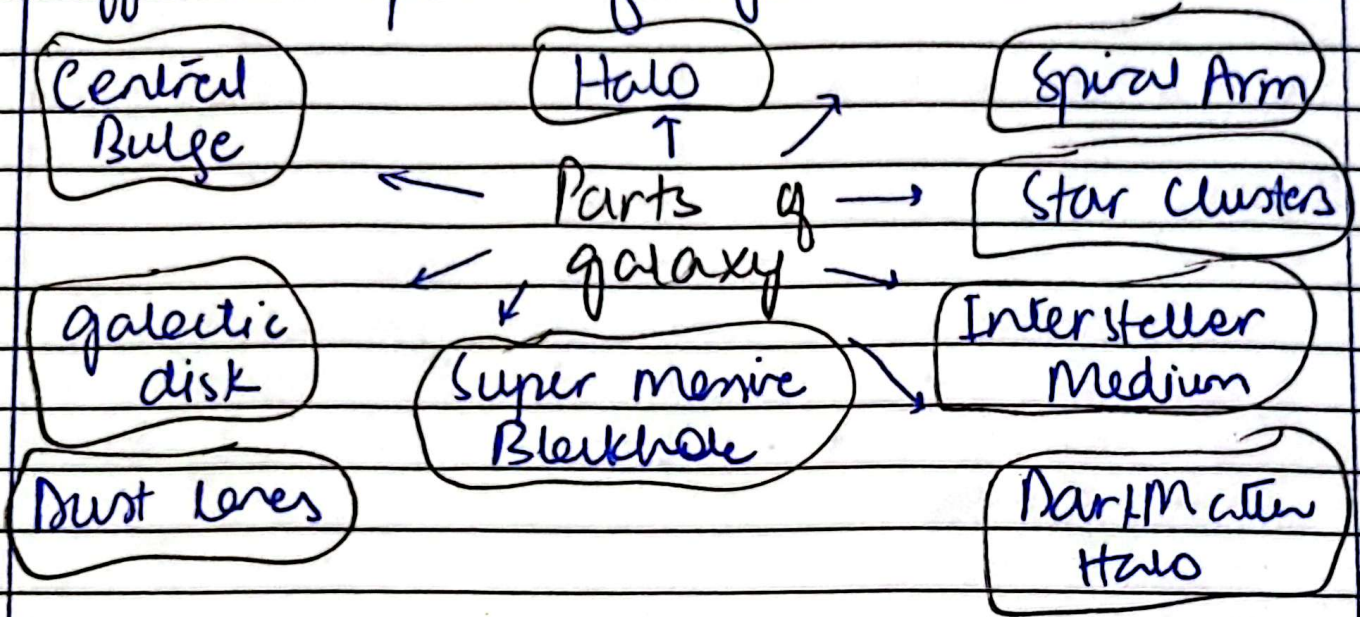 Central
Bulge
Halo
Spiral Arm
Star Clusters
Parts of
galaxy
galactic
disk
Super Massive
Blackhole
Interstellar
Medium
Dust Lanes
Dark Matter
Halo